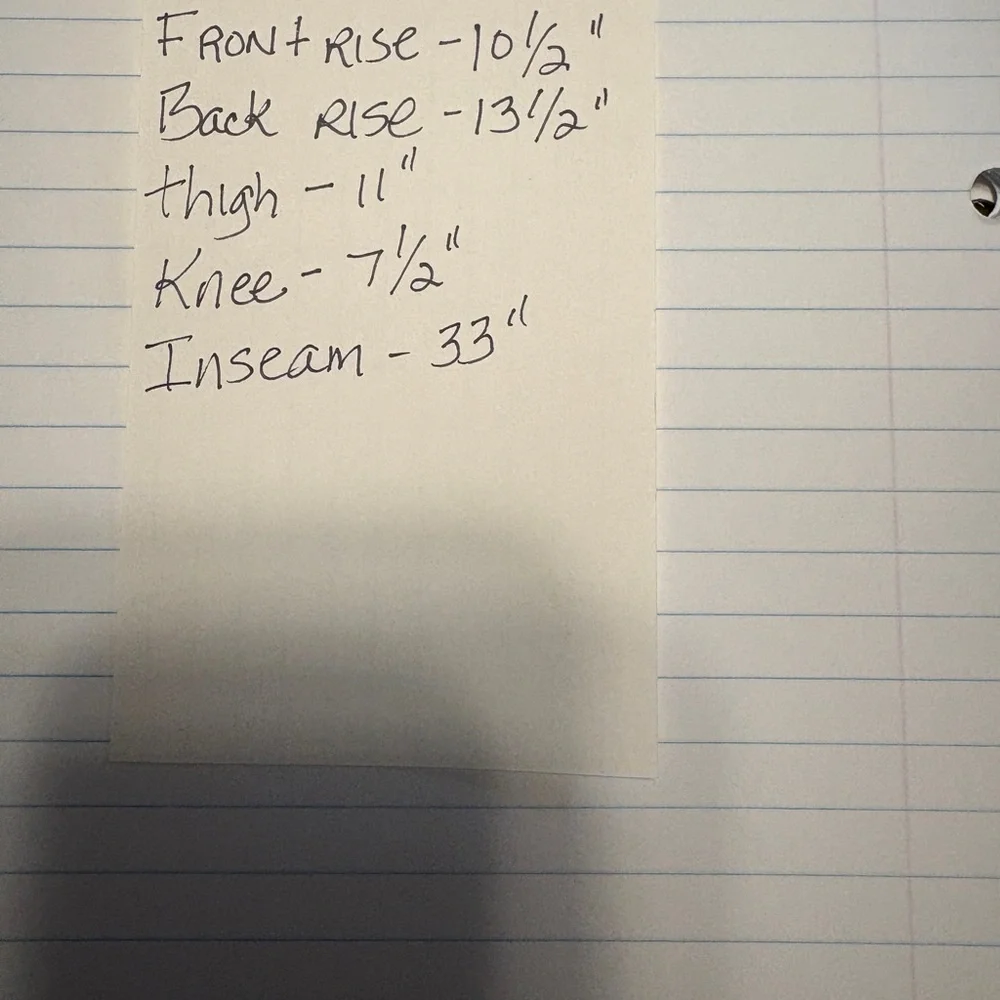 FRONt RISe - 10 1/2"
Back RISe - 13 1/2"
thigh - 11"
Knee - 7 1/2"
Inseam - 33"